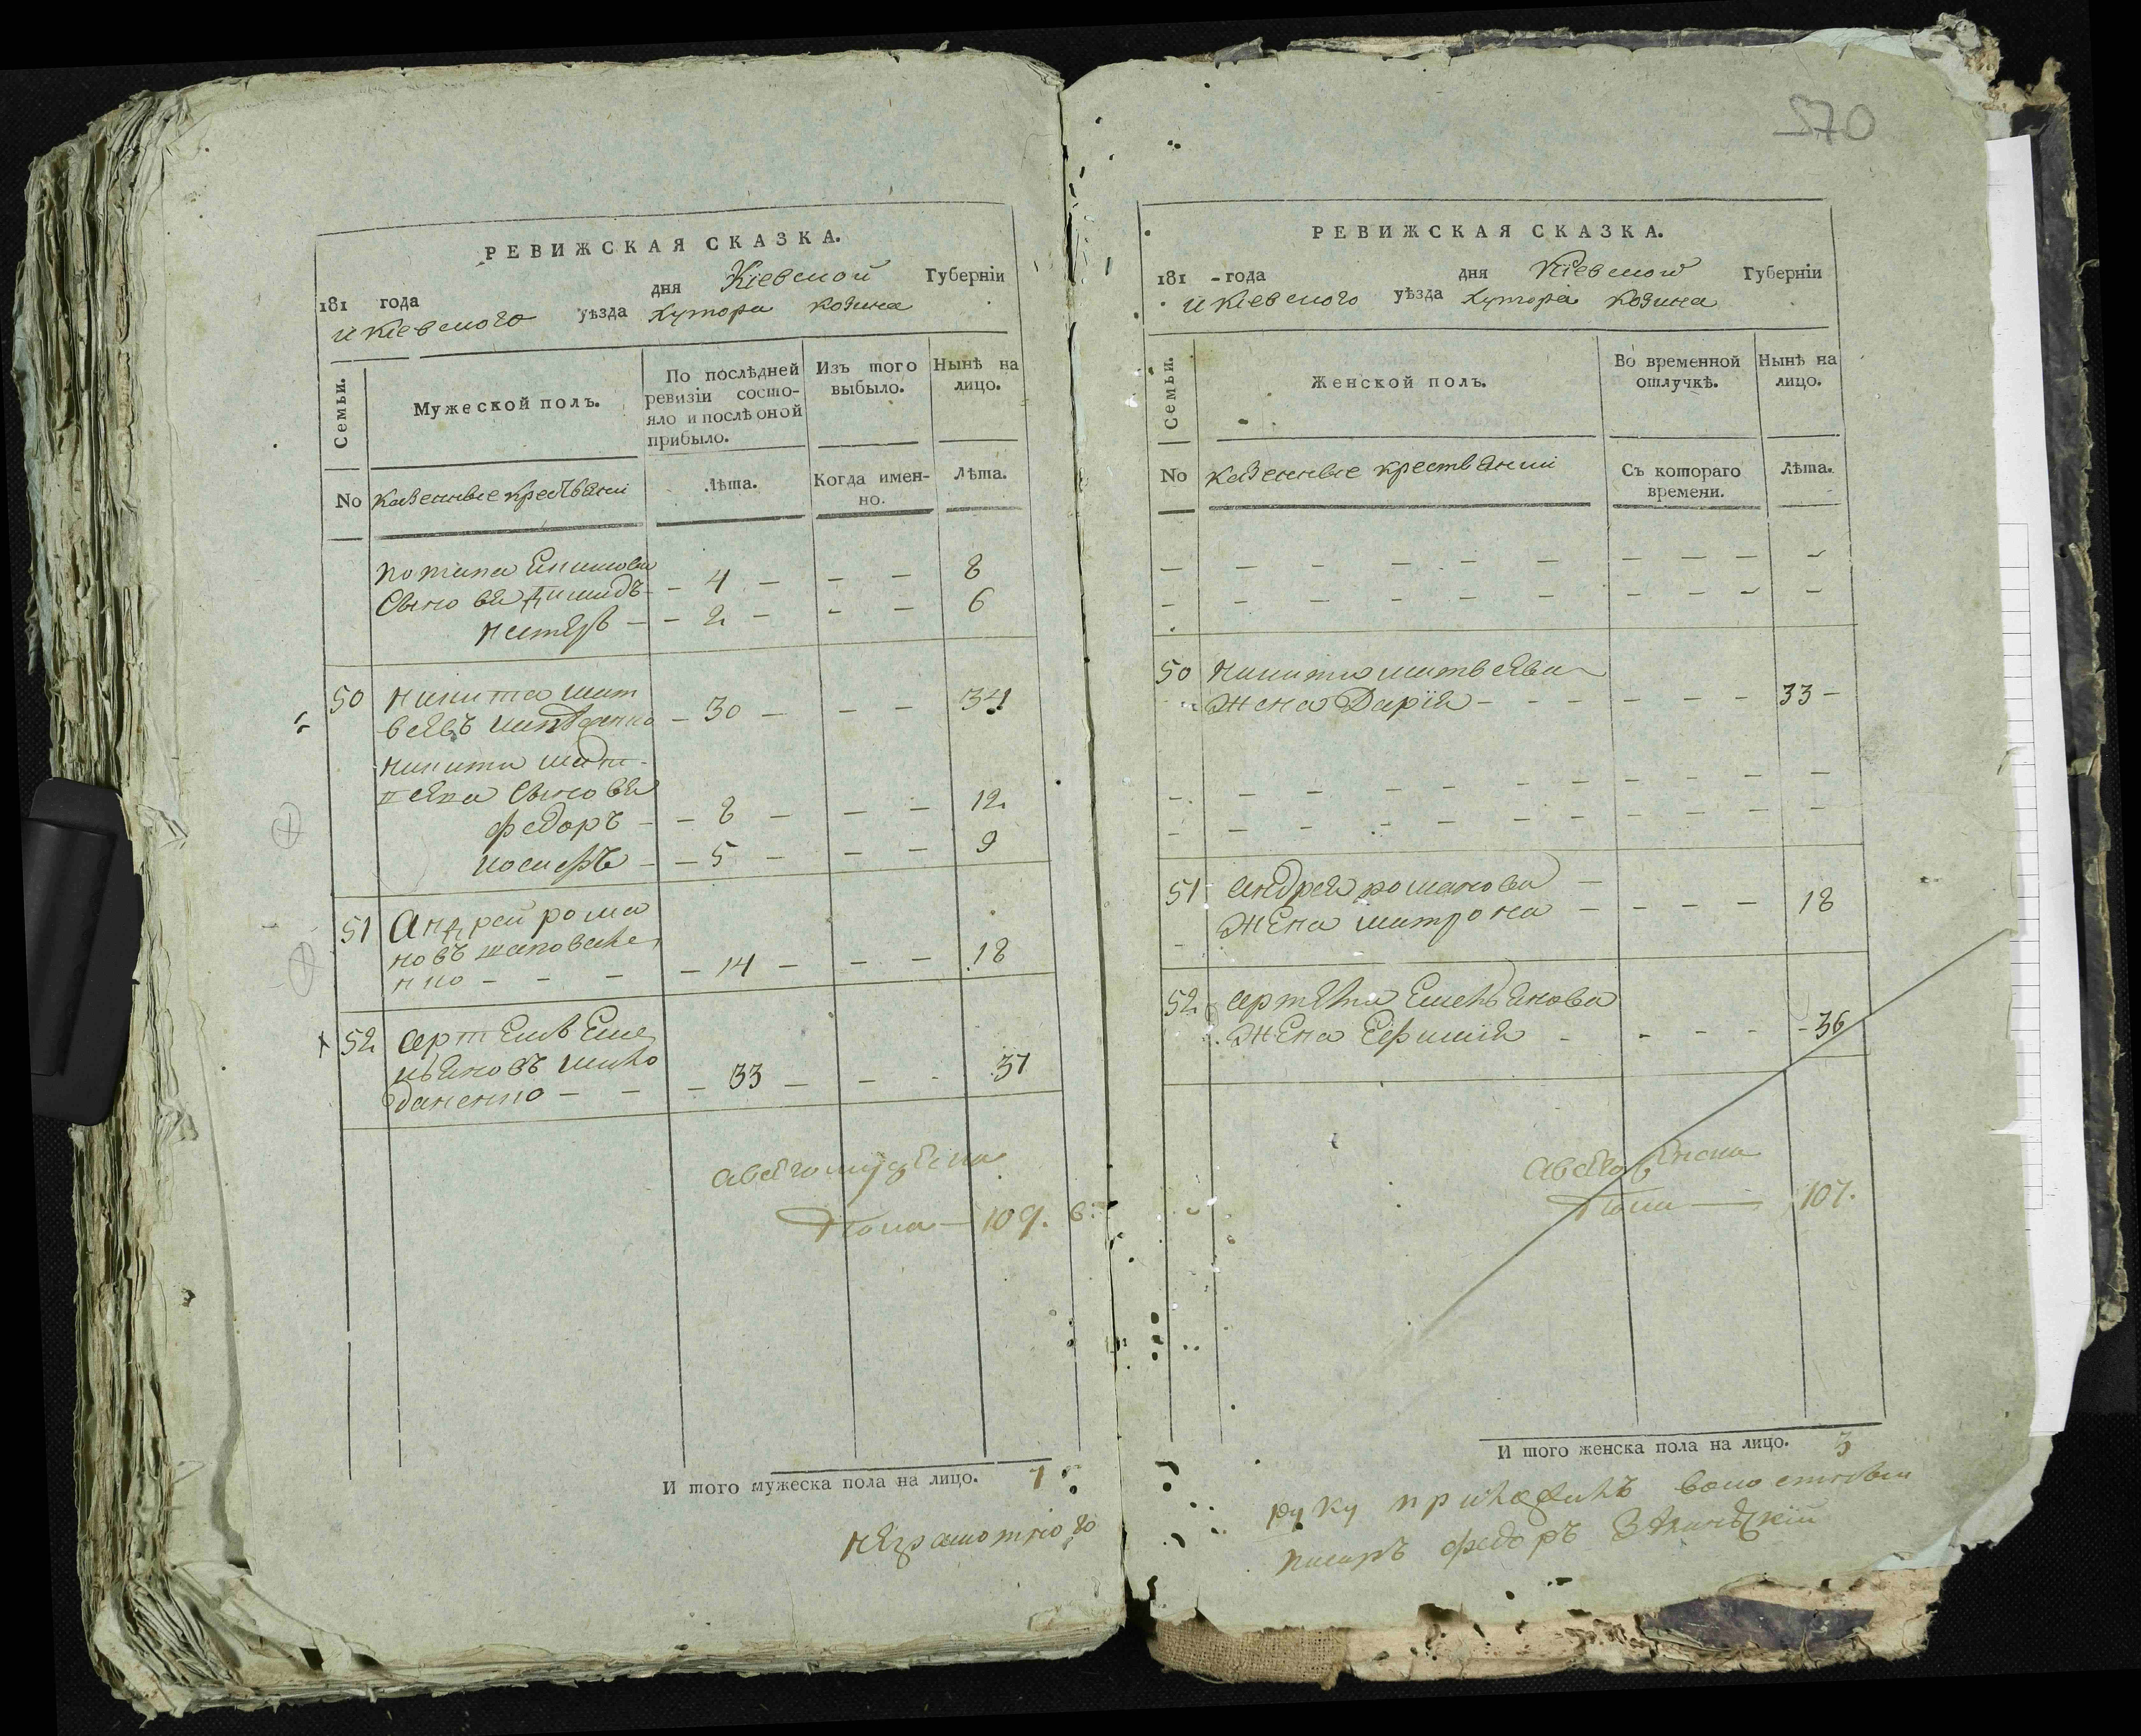 РЕВИЖСКАЯ СКАЗКА.
181 года дня Кіевской Губерніи
и Кіевского уѣзда хутора козина
Семьи.
Мужеской полъ.
По послѣдней ревизіи состо-
яло и послѣ оной
прибыло.
Изъ того
выбыло.
Нынѣ на
лицо.
No
казенные крестьяни
Лѣта.
Когда имен-
но.
Лѣта.
потапа
Сынове - 4 - - - 8
нестеръ - - 2 - - - 6
50 никита мат
веевъ - 30 - - - 34
никити
сынове
федоръ - - 8 - - - 12
иосифъ - - 5 - - - 9
51 Андрей рома
новъ шаповале
нко - - - - 14 - - - 18
52 артемъ Еме
льяновъ шило
даненко - - - 33 - - - 37
пола - 109.
И того мужеска пола на лицо. 7
неграмотного
570
РЕВИЖСКАЯ СКАЗКА.
181 - года дня Кіевской Губерніи
и Кіевского уѣзда хутора козина
Семьи.
Женской полъ.
Во временной
отлучкѣ.
Нынѣ на
лицо.
No
казенные крестьянки
Съ котораго
времени.
Лѣта.
50 никити матвеева
жена Дарія - - - - - - 33 -
51 андрея романова -
жена матрона - - - - 18
52 артема Емельянова
жена Ефимія - - - - - 36
пола - 107.
И того женска пола на лицо. 3
руку приложилъ волостный
писаръ федоръ